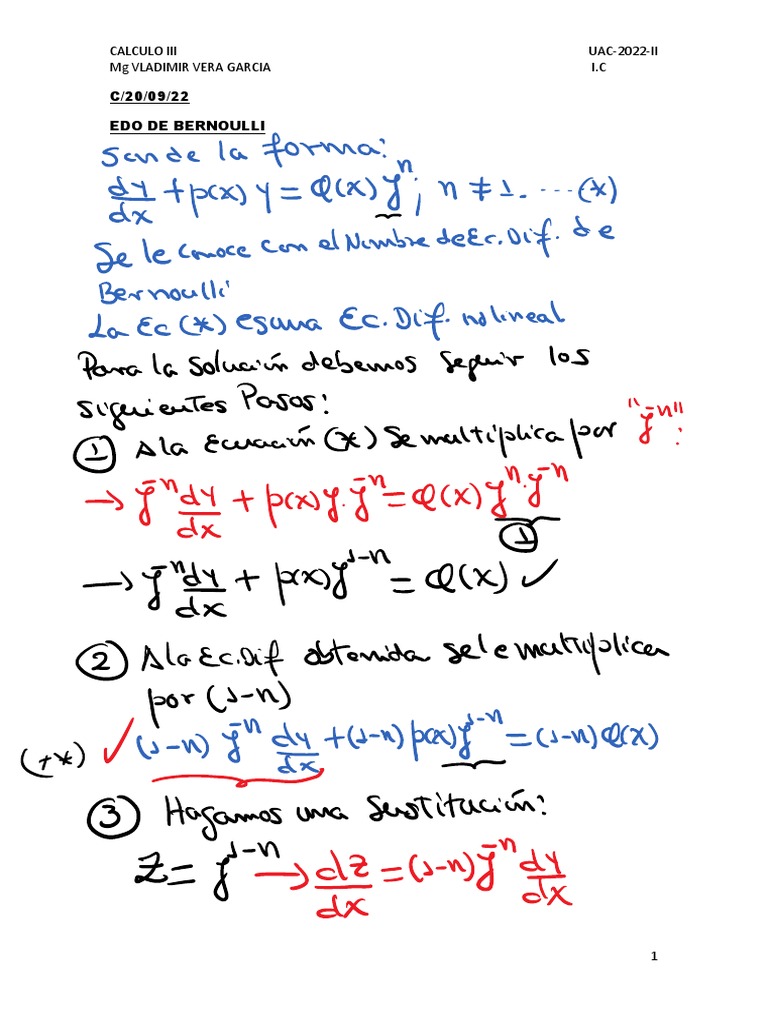 CALCULO III UAC-2022-II
Mg VLADIMIR VERA GARCIA I.C
C/20/09/22
EDO DE BERNOULLI
Son de la forma:
dy/dx + p(x) y = Q(x) y^n ; n ≠ 1. ....(*)
Se le conoce con el Nombre de Ec. Dif. de
Bernoulli
La Ec (*) es una Ec. Dif. no lineal
Para la solución debemos seguir los
siguientes Pasos:
① A la Ecuación (*) se multiplica por "y^-n" :
→ y^-n dy/dx + p(x) y. y^-n = Q(x) y^n . y^-n
1
→ y^-n dy/dx + p(x) y^1-n = Q(x) ✓
② A la Ec. Dif obtenida se le multiplica
por (1-n)
(+*) ✓ (1-n) y^-n dy/dx + (1-n) p(x) y^1-n = (1-n) Q(x)
③ Hagamos una Sustitución:
Z = y^1-n → dZ/dx = (1-n) y^-n dy/dx
1